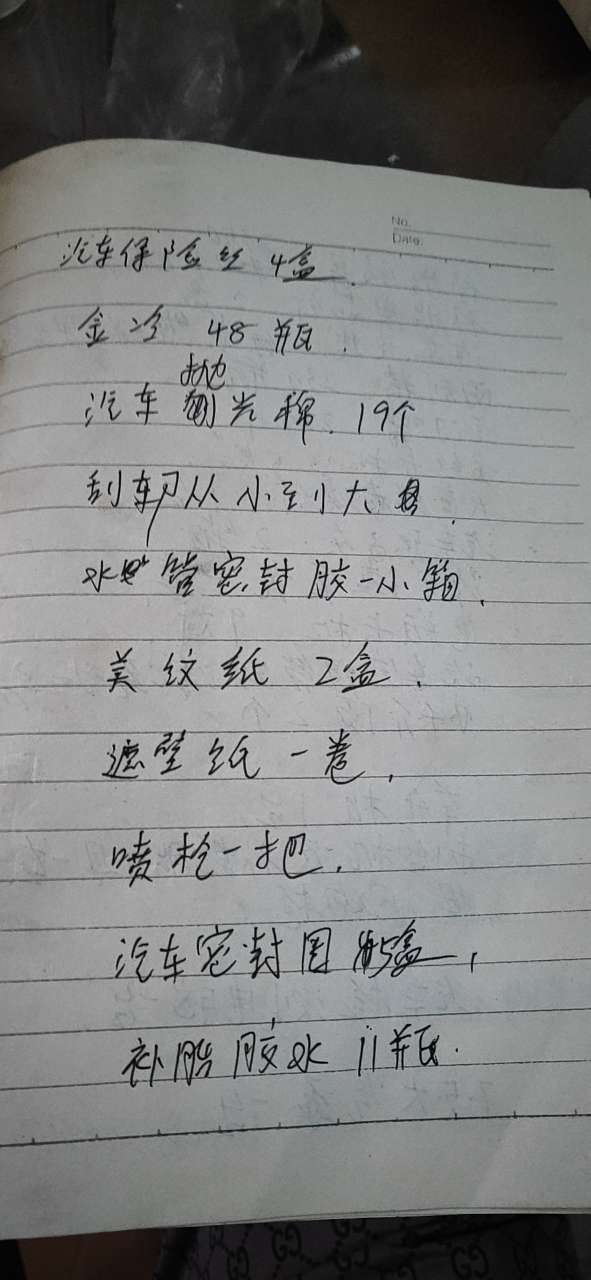 No.
Date.
汽车保险丝 4盒.
金冷 48瓶.
汽车抛光棉. 19个
刮车刀从小到大
水管密封胶一小箱.
美纹纸 2盒.
遮蔽纸一卷,
喷枪一把.
汽车密封圈 5盒,
补胎胶水 11瓶.